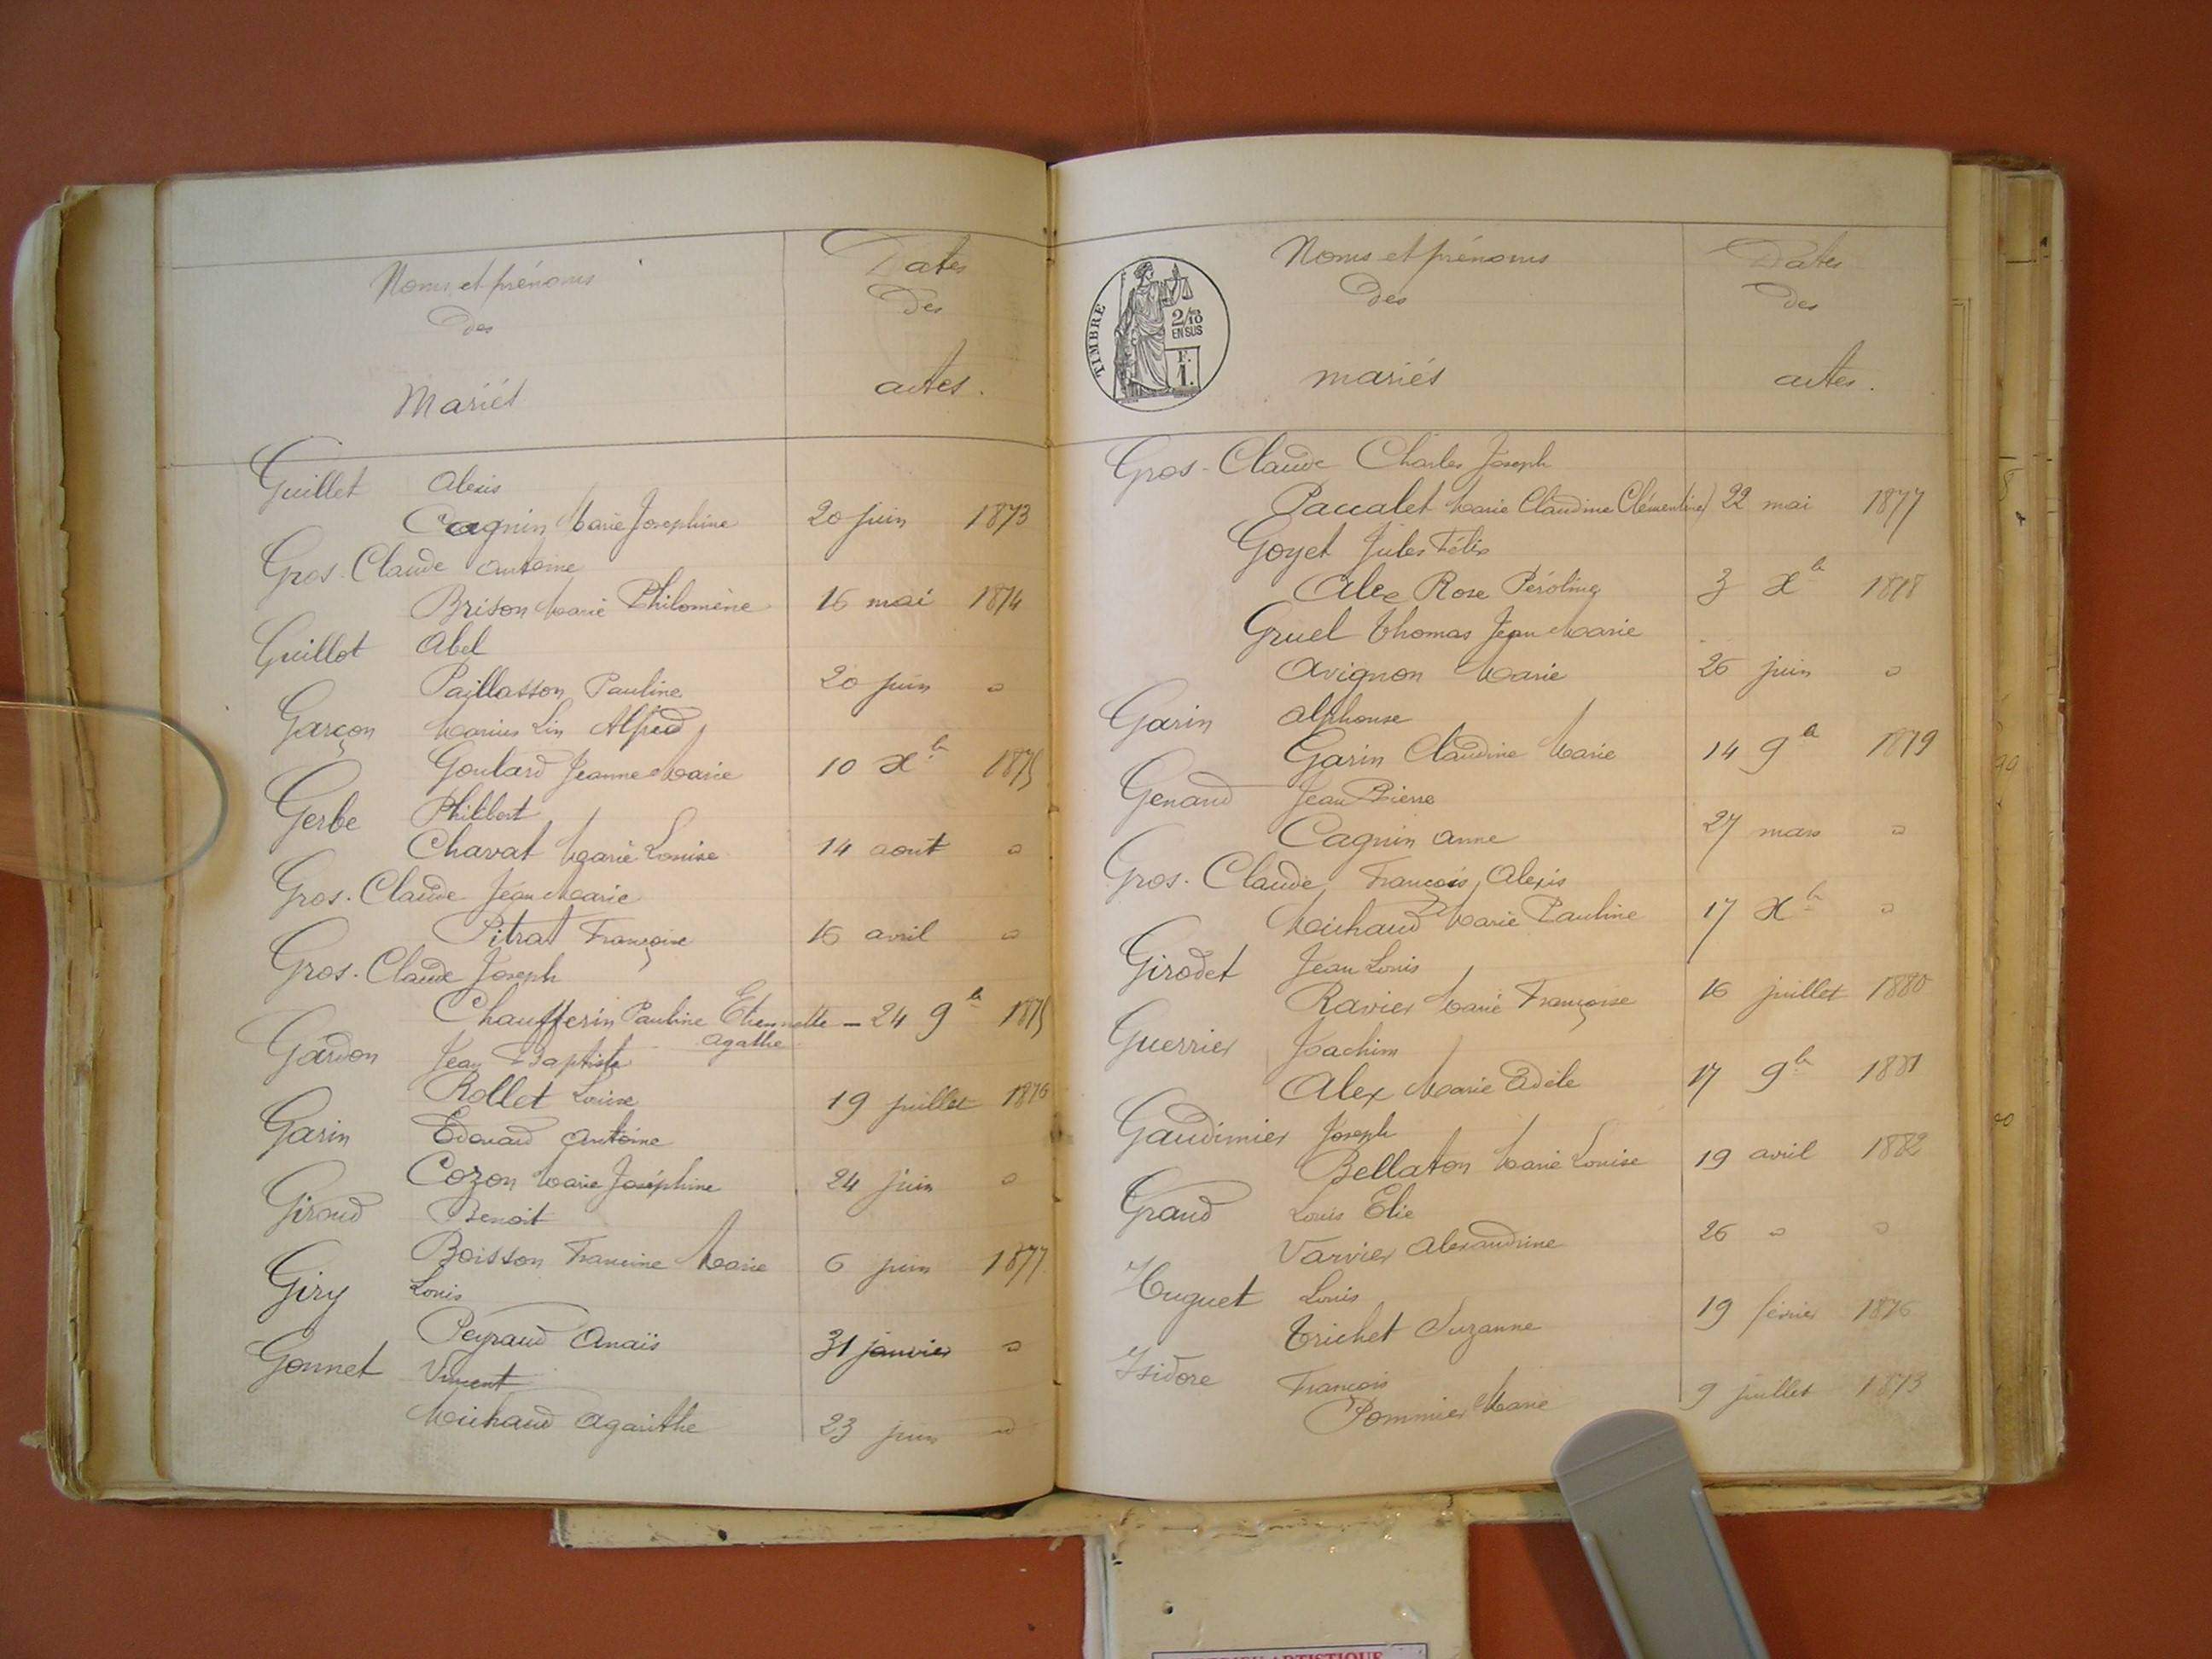 Noms et prénoms
des
Mariés
Dates
des
actes.
Guillet Alexis
Cagnin Marie Josephine 20 juin 1873
Gros-Claude Antoine
Brison Marie Philomène 16 mai 1874
Guillot Abel
Paillasson Pauline 20 juin "
Garçon Marius Lin Alfred
Goulard Jeanne Marie 10 Xbre 1875
Gerbe Philibert
Chavat Marie Louise 14 aout "
Gros-Claude Jean Marie
Pitrat Françoise 16 avril "
Gros-Claude Joseph
Chaufferin Pauline Etiennette — 24 9bre 1875
Agathe
Gardon Jean Baptiste
Rollet Louise 19 juillet 1876
Garin Edouard Antoine
Cozon Marie Joséphine 24 juin "
Giraud Benoit
Boisson Francine Marie 6 juin 1877
Giry Louis
Peyraud Anaïs 31 janvier "
Gonnet Vincent
Michaud Agarithe 23 juin "
TIMBRE
2/10
EN SUS
F.
1.
Noms et prénoms
des
mariés
Dates
des
actes.
Gros-Claude Charles Joseph
Paccalet Marie Claudine Clémentine) 22 mai 1877
Goyet Jules Félix
Alex Rose Péroline 3 Xbre 1878
Gruel Thomas Jean Marie
Avignon Marie 26 juin "
Garin Alphonse
Garin Claudine Marie 14 9bre 1879
Genaud Jean Pierre
Cagnin Anne 27 mars "
Gros-Claude François Alexis
Michaud Marie Pauline 17 Xbre "
Girodet Jean Louis
Ravier Marie Françoise 16 juillet 1880
Guerrier Joachim
Alex Marie Adèle 17 9bre 1881
Gaudimier Joseph
Bellaton Marie Louise 19 avril 1882
Graud Louis Elie
Varvier Alexandrine 26 " "
Huguet Louis
Trichet Suzanne 19 février 1876
Isidore François
Pommier Marie 9 juillet 1873